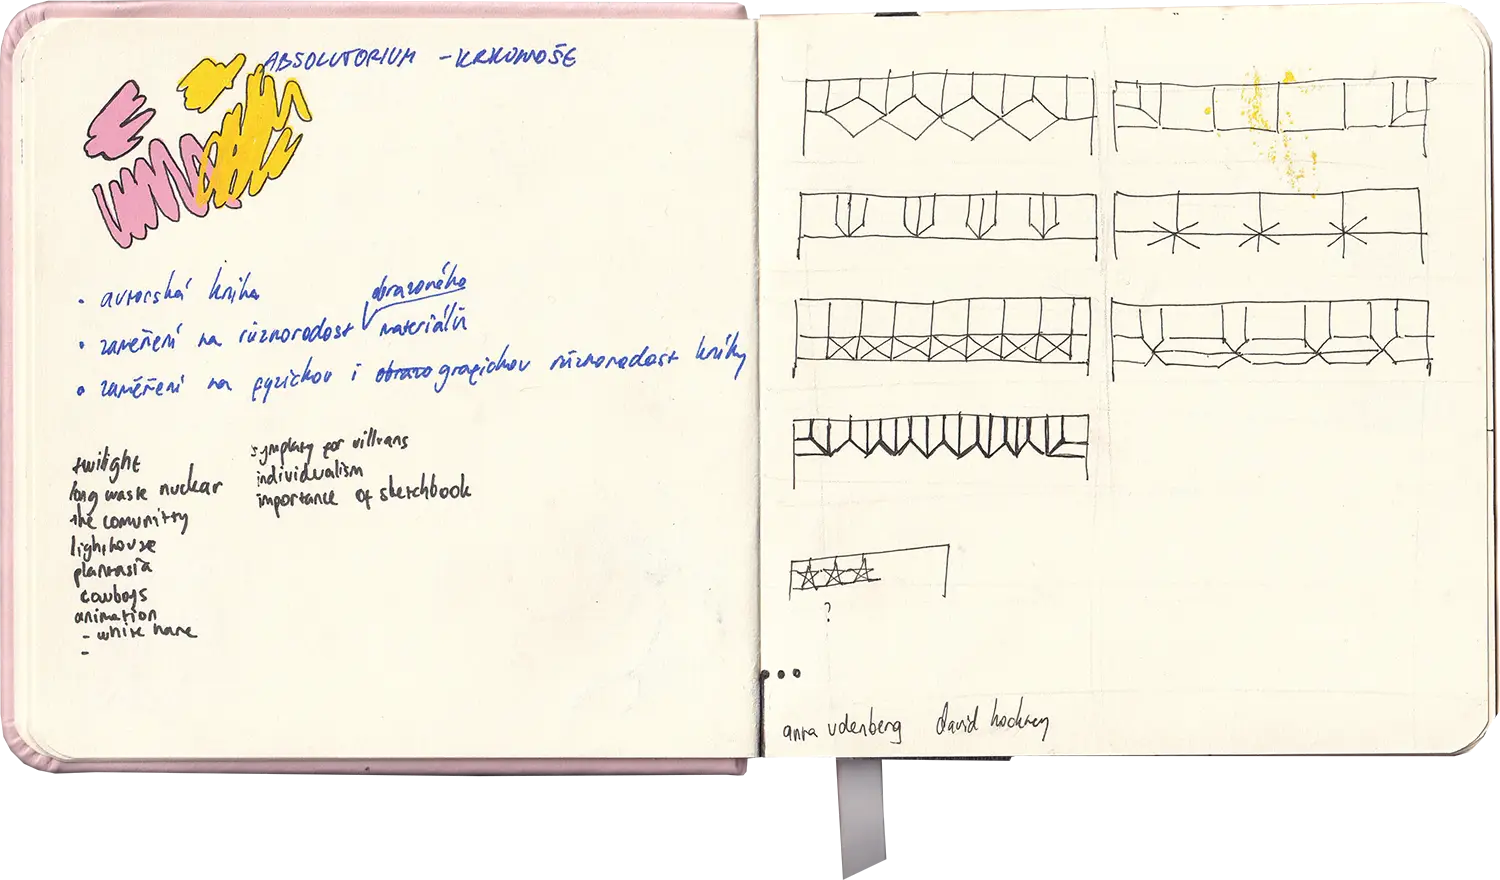 ABSOLUTORIUM - KRKONOŠE
• autorská kniha
• zaměření na různorodost obrazového materiálů
• zaměření na fyzickou i obrazo grafickou různorodost knihy
twilight
long waste nuclear
the comunitty
lighthouse
plantasia
cowboys
animation
- white hare
-
symphaty for villians
individualism
importance of sketchbook
?
anna udenberg david hockney